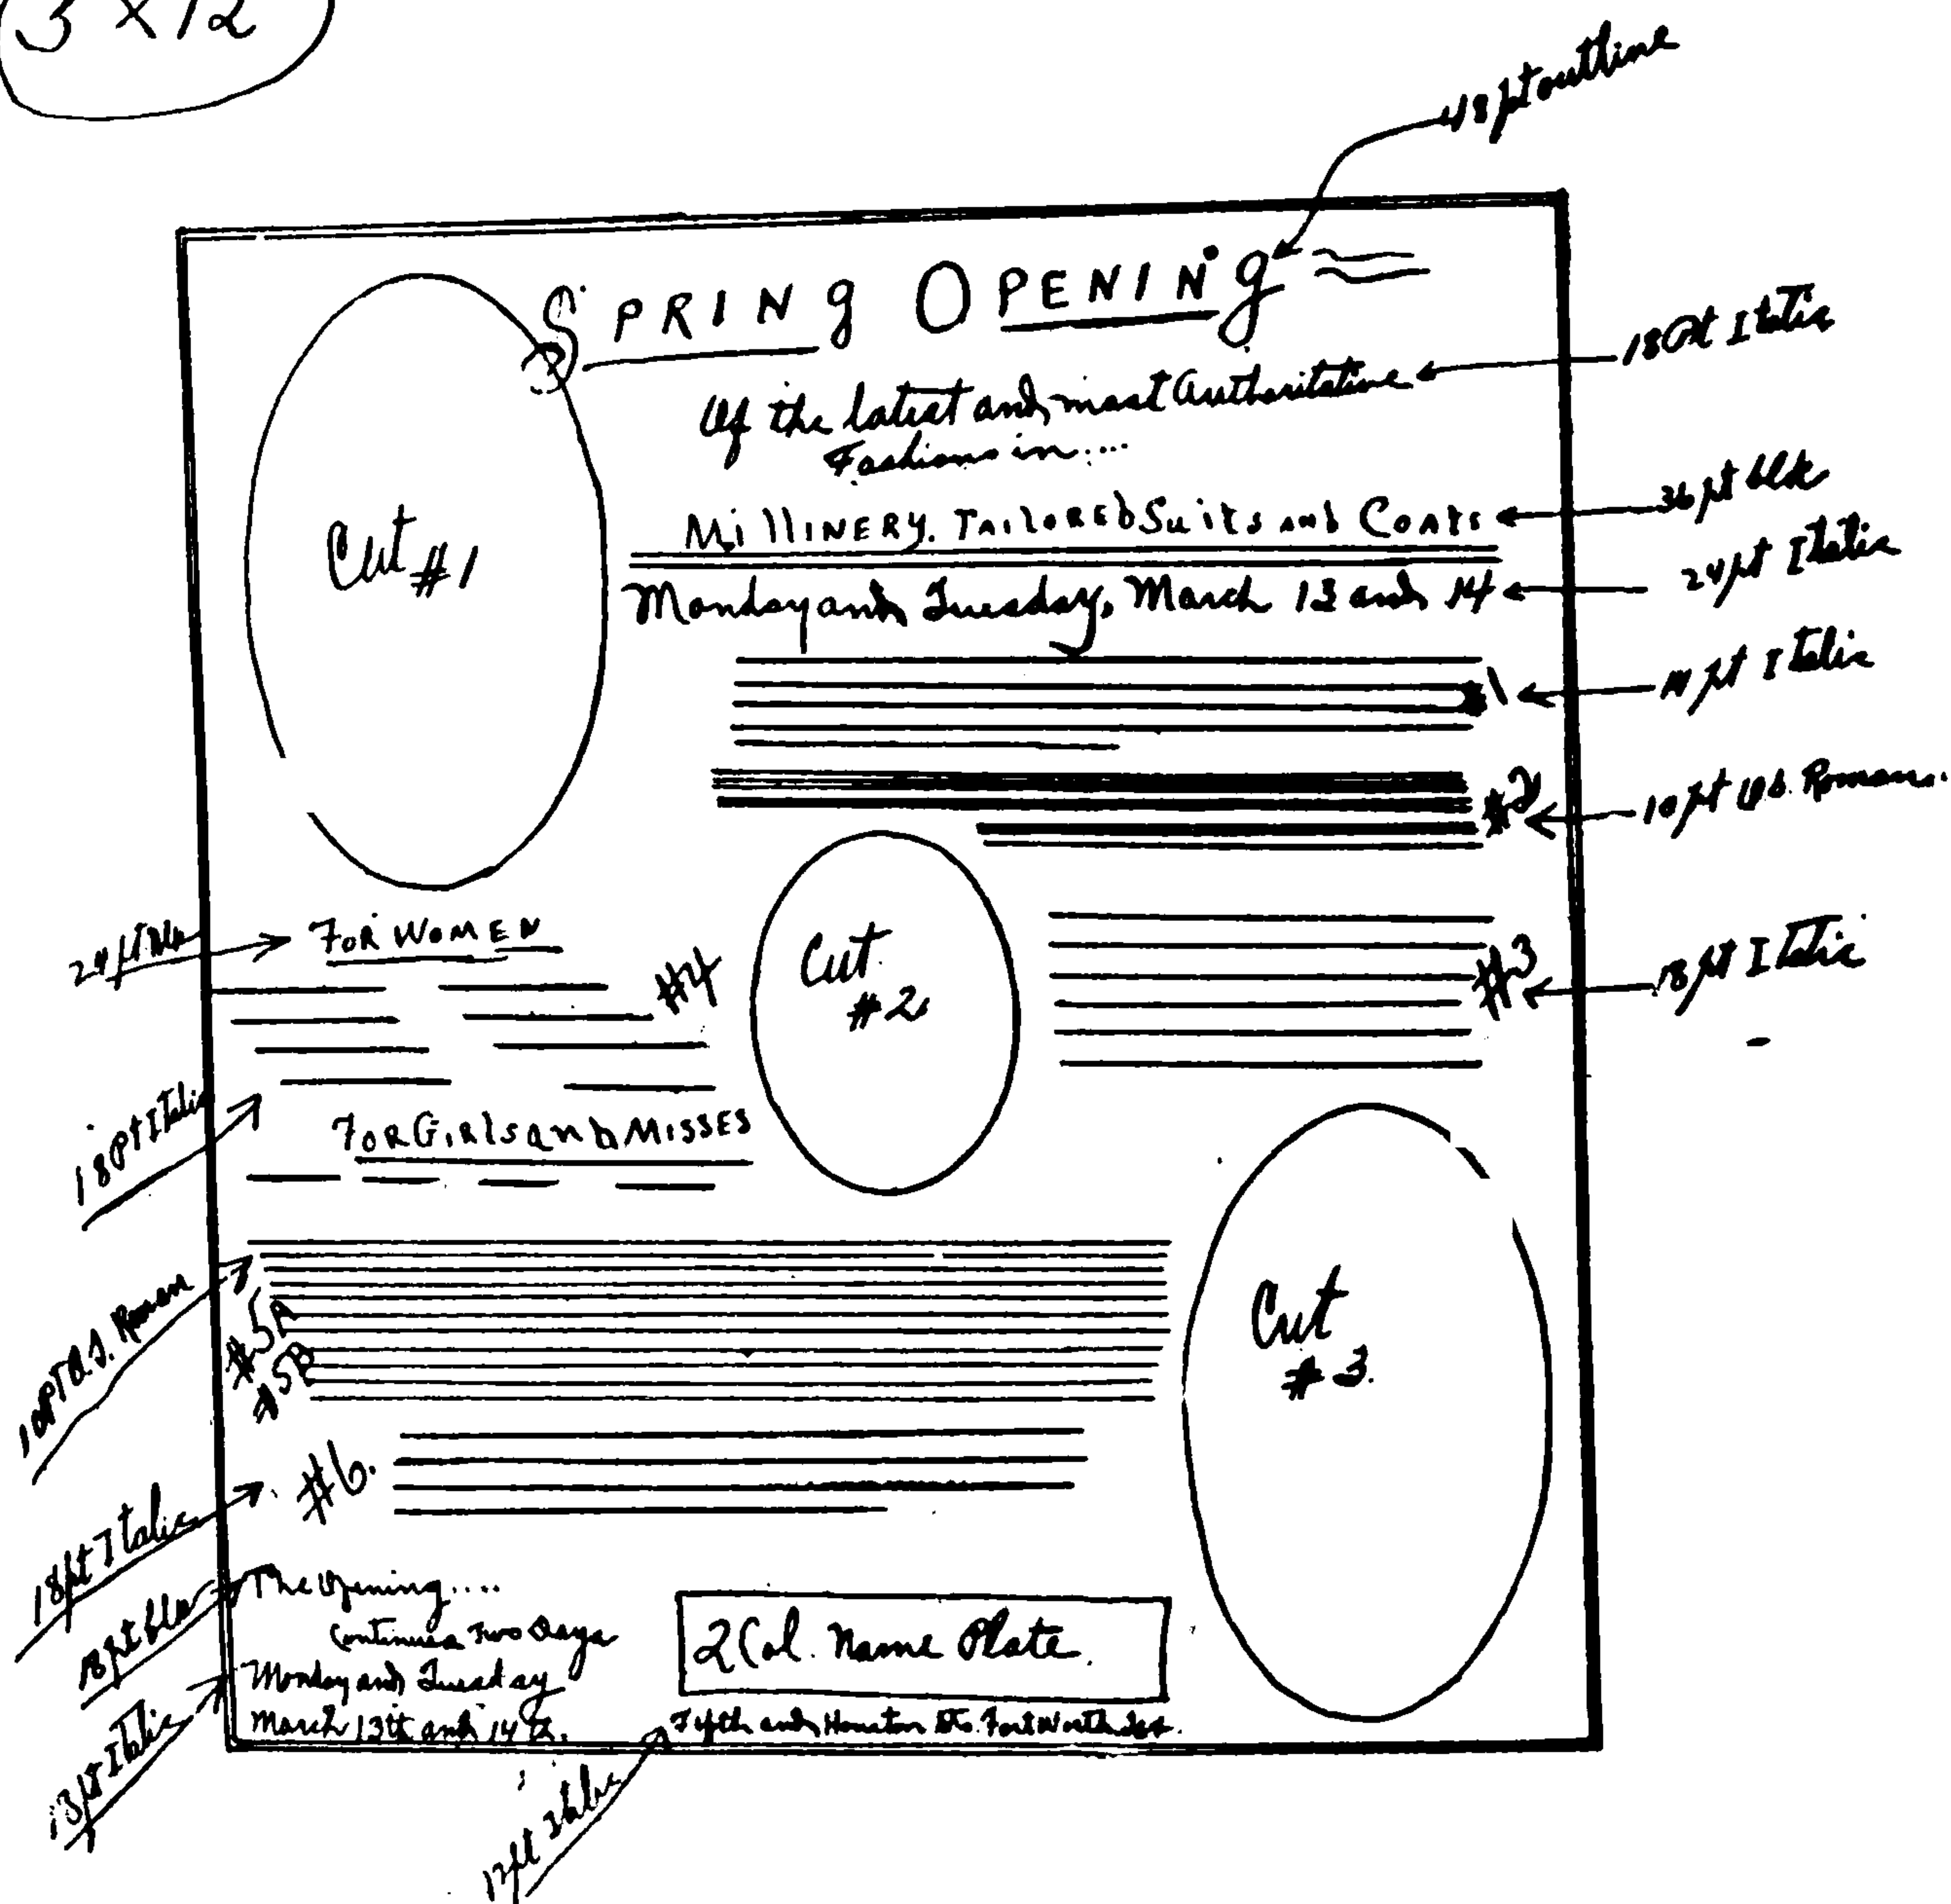 3 x 12
48 pt outline
SPRING OPENING
18 pt Italic
Of the latest and most Authoritative
Fashions in....
36 pt blk
MilliNERY. TAILORED Suits AND COATS
24 pt Italic
Monday and Tuesday, March 13 and 14
pt Italic
10 pt O.S. Roman.
#2
24 pt blk
FOR WOMEN
#4
#3
18 pt Italic
18 pt Italic
FOR GIRLS AND MISSES
Cut #1
Cut
#2
10 PT O.S. Roman
#5A
#5B
18 pt Italic
#6.
Cut
#3.
18 pt blk
The Opening....
Continues Two Days
Monday and Tuesday
March 13th and 14th.
18 pt Italic
2 Col. Name Plate
Fifth and Houston Sts. Fort Worth Tex.
12 pt Italic